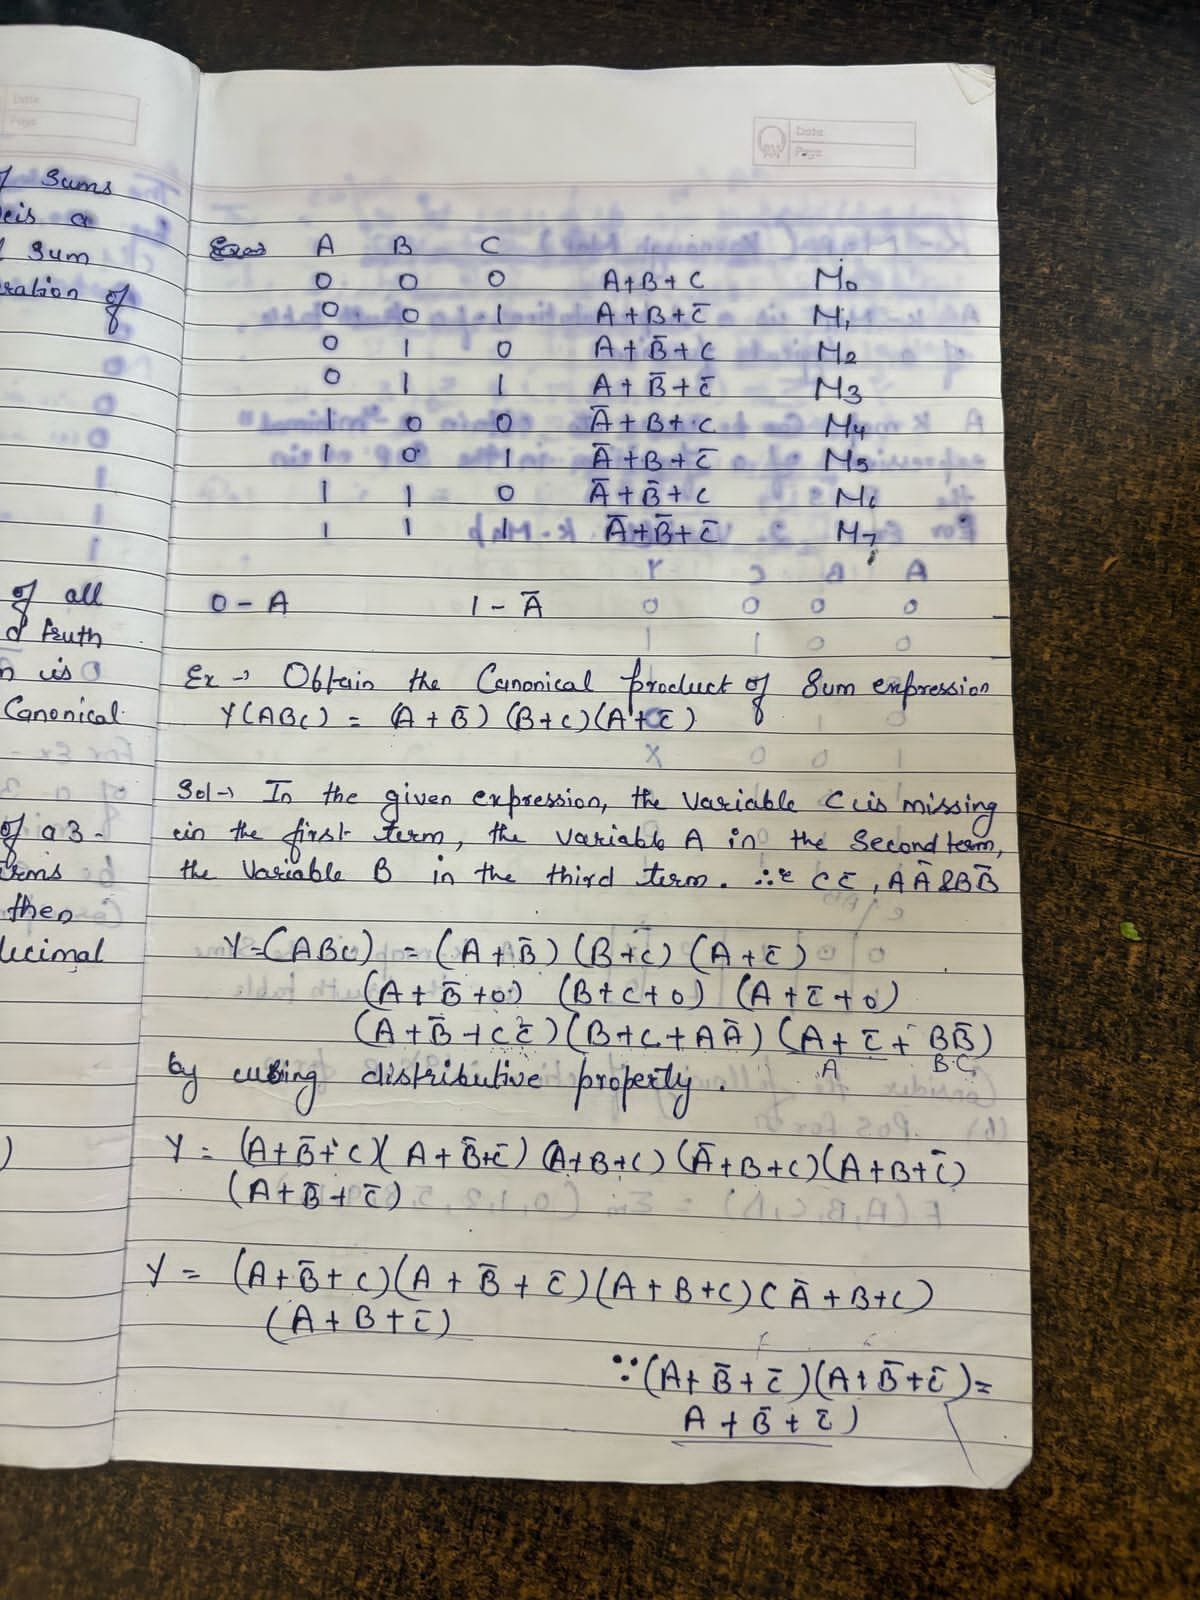 Data
Page
of Sums
is a
Sum
of
of all
truth
is
Canonical
of a 3-
then
decimal
)
Data
Page
A B C
0 0 0 A+B+C M0
0 0 1 A+B+C̅ M1
0 1 0 A+B̅+C M2
0 1 1 A+B̅+C̅ M3
1 0 0 A̅+B+C M4
1 0 1 A̅+B+C̅ M5
1 1 0 A̅+B̅+C M6
1 1 1 A̅+B̅+C̅ M7
0 - A 1 - A̅
Ex → Obtain the Canonical product of Sum expression
Y(ABC) = (A+B̅) (B+C) (A+C̅)
Sol → In the given expression, the variable C is missing
in the first term, the variable A in the Second term,
the Variable B in the third term. ∴ CC̅, AA̅ & BB̅
Y=(ABC) = (A+B̅) (B+C) (A+C̅)
(A+B̅+0) (B+C+0) (A+C̅+0)
(A+B̅+CC̅) (B+C+AA̅) (A+C̅+BB̅)
A B C
by using distributive property.
Y = (A+B̅+C)(A+B̅+C̅) (A+B+C) (A̅+B+C) (A+B+C̅)
(A+B̅+C̅)
Y = (A+B̅+C)(A+B̅+C̅)(A+B+C)(A̅+B+C)
(A+B+C̅)
∵ (A+B̅+C̅)(A+B̅+C̅)=
A+B̅+C̅)